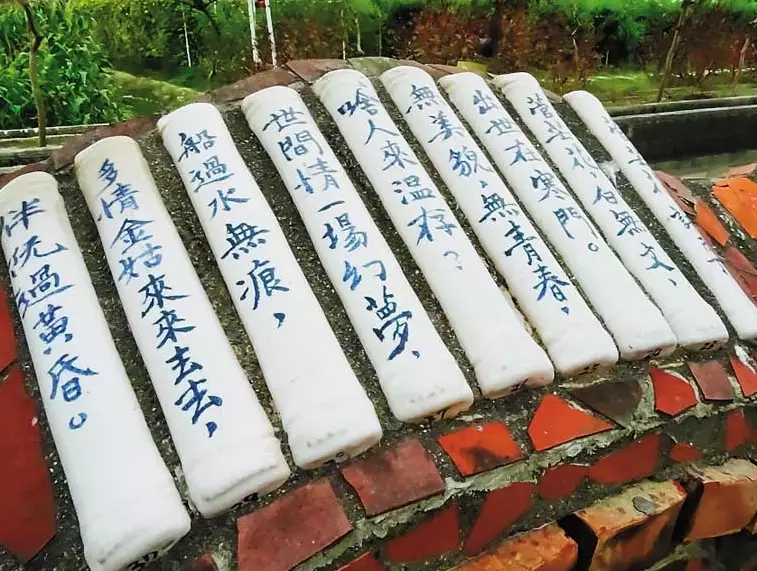 菅芒花,白無文、
出世在寒門。
無美貌,無青春,
啥人來溫存?
世間情一場幻夢、
船過水無痕,
多情金姑來來去去,
伴阮過黃昏。
37